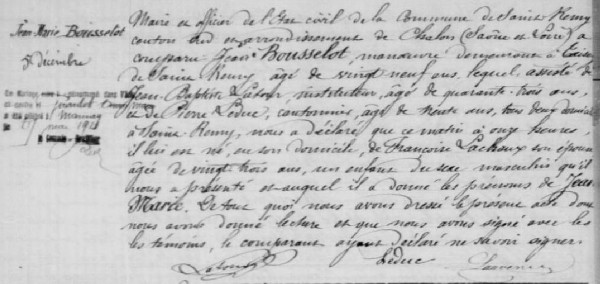 Jean Marie Bousselot
5 décembre
Maire et officier de l'Etat civil de la Commune de Saint Remy
canton sud arrondissement de Chalon (Saône et Loire) a
comparu Jean Bousselot, manœuvre demeurant à
de Saint Remy, âgé de vingt neuf ans, lequel, assisté de
Jean-Baptiste Latour, instituteur, âgé de quarante-trois ans,
et de Pierre Leduc, cantonnier, âgé de trente ans, tous deux domiciliés
à Saint Remy, nous a déclaré que ce matin à onze heures,
il lui est né, en son domicile, de Françoise Lachaux son épouse
âgée de vingt trois ans, un enfant du sexe masculin qu'il
nous a présenté et auquel il a donné les prénoms de Jean
Marie. De tout quoi nous avons dressé le présent acte dont
nous avons donné lecture et que nous avons signé avec les
les témoins, le comparant ayant déclaré ne savoir signer.
Latour Leduc